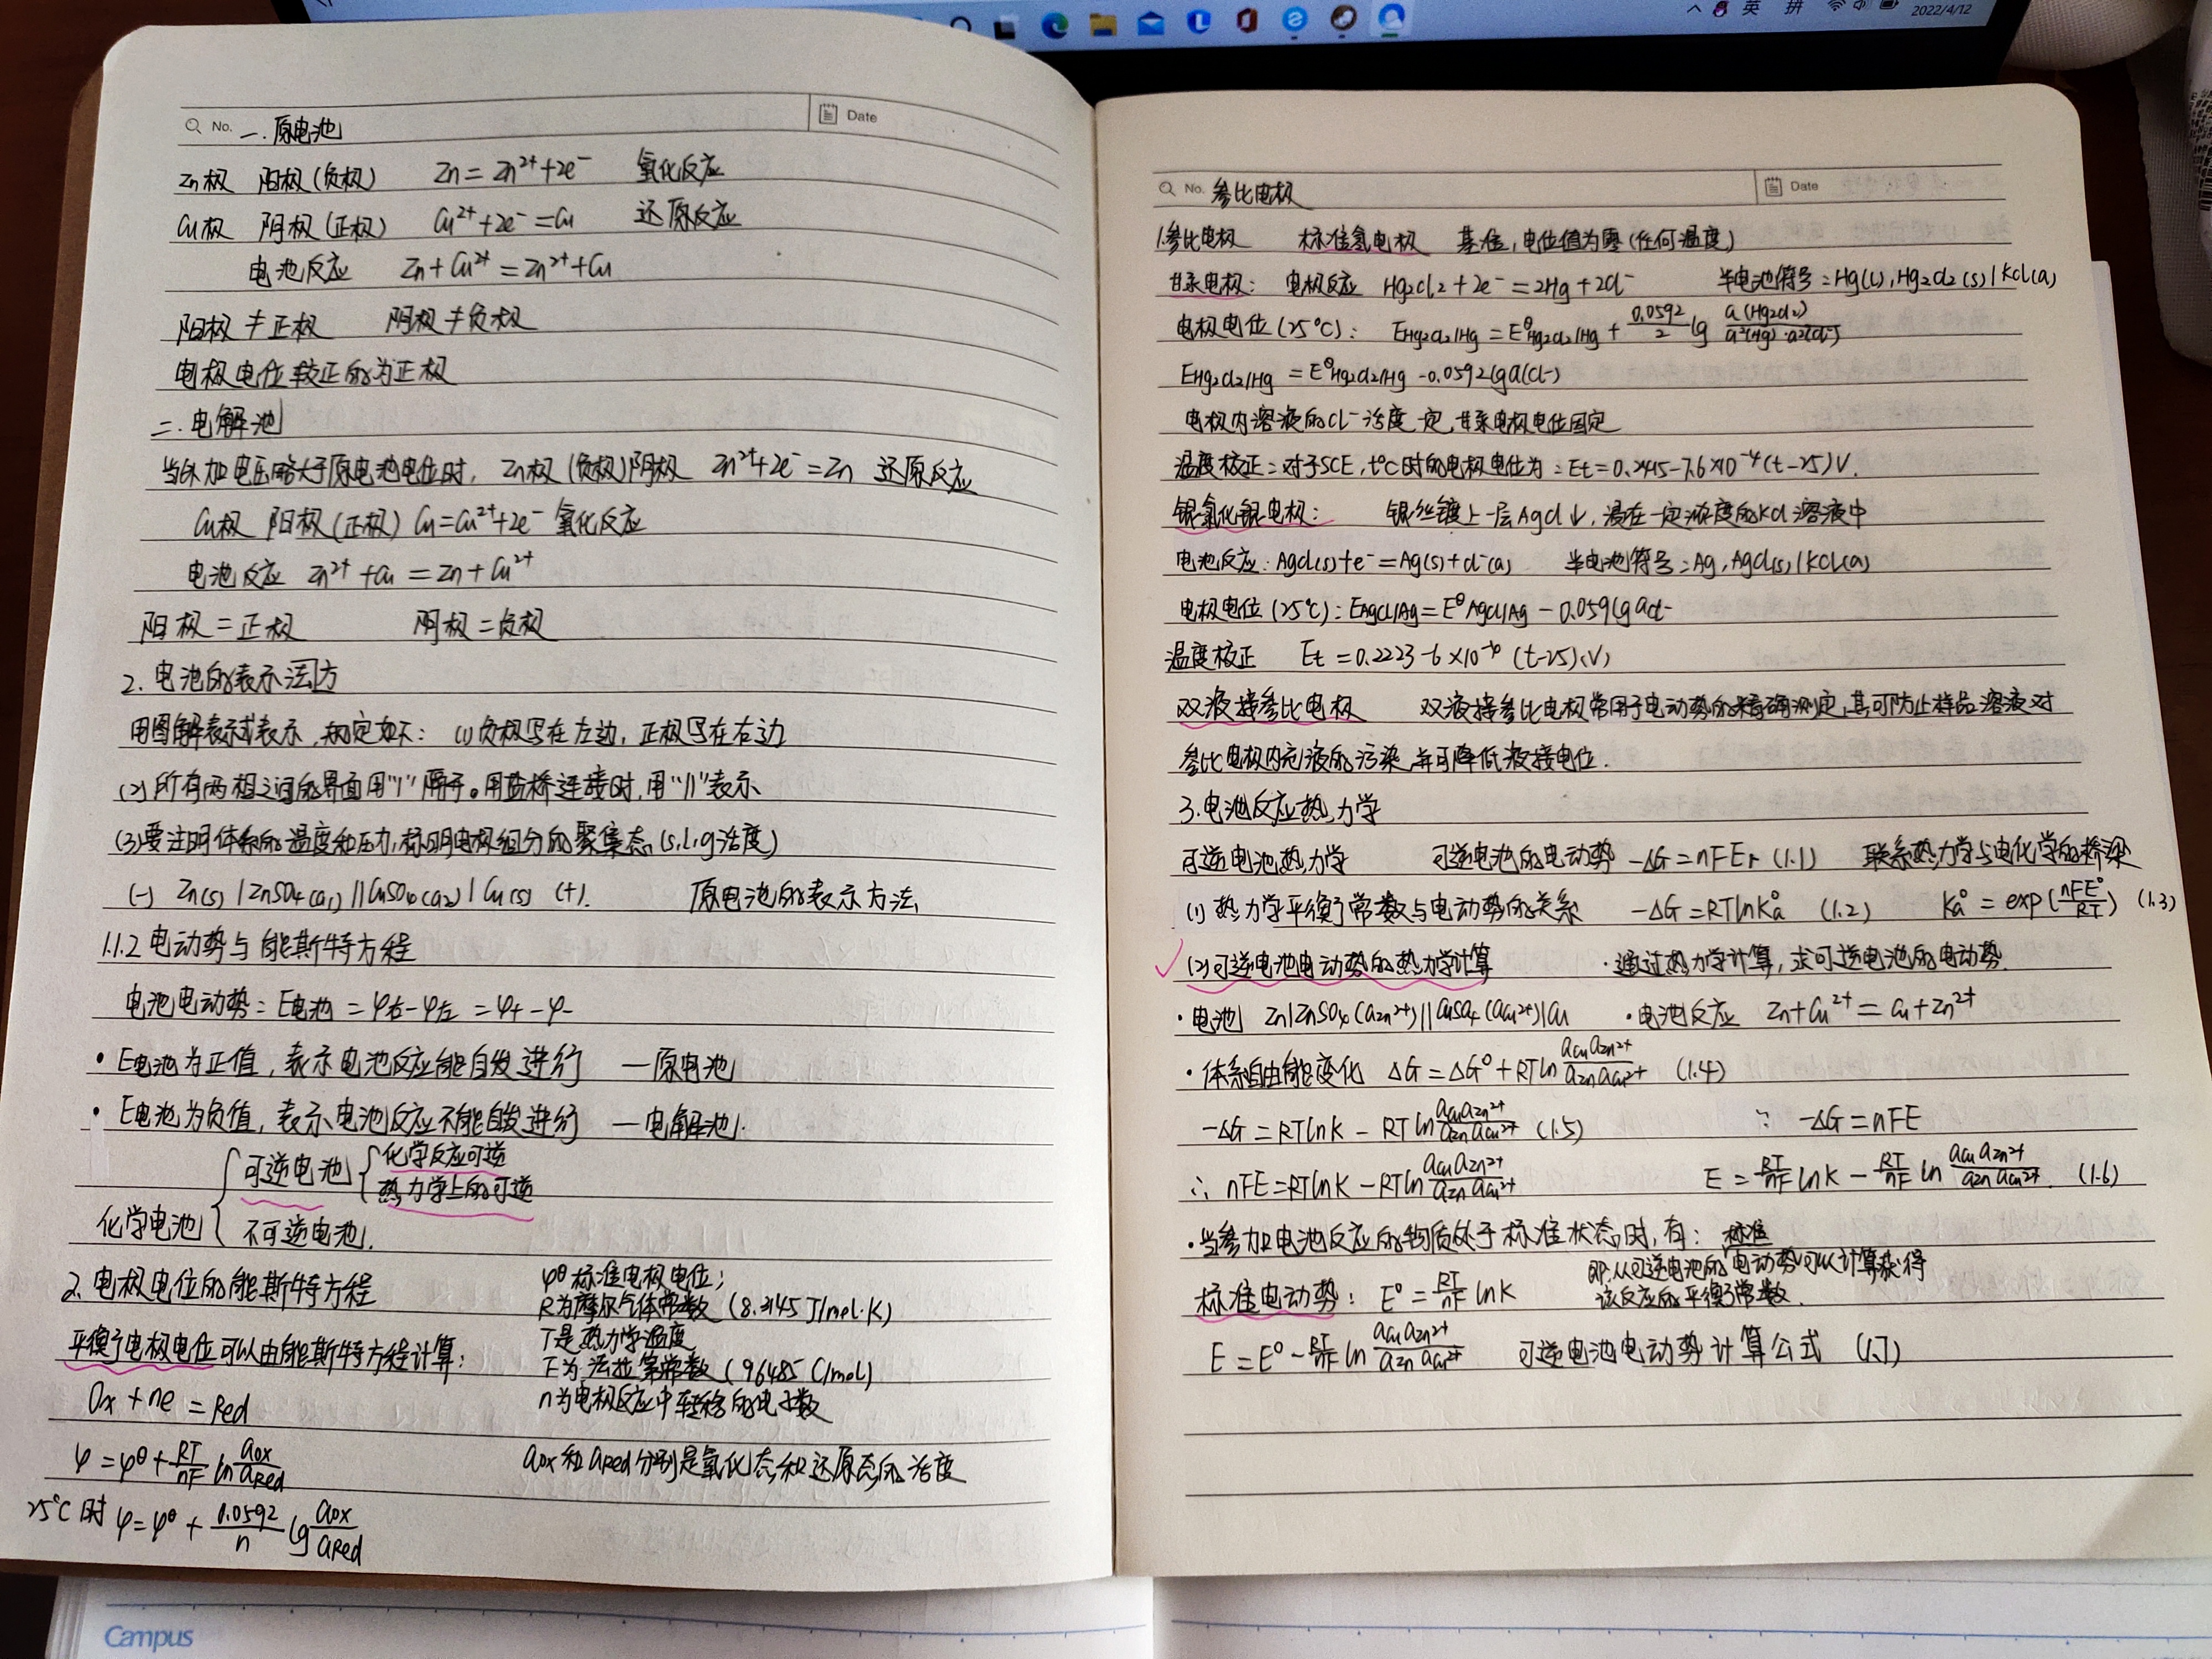 英 拼 2022/4/12
No. 一.原电池 Date
Zn极 阳极(负极) Zn = Zn²⁺+2e⁻ 氧化反应
Cu极 阴极(正极) Cu²⁺+2e⁻=Cu 还原反应
电池反应 Zn+Cu²⁺=Zn²⁺+Cu
阳极≠正极 阴极≠负极
电极电位较正的为正极
二.电解池
当外加电压略大于原电池电位时, Zn极(负极)阴极 Zn²⁺+2e⁻=Zn 还原反应
Cu极 阳极(正极) Cu=Cu²⁺+2e⁻ 氧化反应
电池反应 Zn²⁺+Cu=Zn+Cu²⁺
阳极=正极 阴极=负极
2.电池的表示法方
用图解表示式表示,规定如下: (1)负极写在左边,正极写在右边
(2)所有两相之间的界面用"|"隔开。用盐桥连接时,用"||"表示
(3)要注明体系的温度和压力,标明电极组分的聚集态(s,l,g活度)
(-) Zn(s) | ZnSO₄(a₁) || CuSO₄(a₂) | Cu(s) (+). 原电池的表示方法
1.1.2 电动势与能斯特方程
电池电动势: E电池=φ右-φ左=φ+-φ-
• E电池为正值,表示电池反应能自发进行 —原电池
• E电池为负值,表示电池反应不能自发进行 —电解池.
化学电池 { 可逆电池 { 化学反应可逆
热力学上的可逆
不可逆电池.
2.电极电位的能斯特方程
φ^θ标准电极电位;
R为摩尔气体常数 (8.3145 J/mol·K)
平衡电极电位可以由能斯特方程计算:
T是热力学温度
F为法拉第常数 (96485 C/mol)
Ox + ne = Red
n为电极反应中转移的电子数
φ=φ^θ+RT/nF ln aOx/aRed
aOx和aRed分别是氧化态和还原态的活度
25°C时 φ=φ^θ+0.0592/n lg aOx/aRed
No. 参比电极 Date
1.参比电极 标准氢电极 基准,电位值为零(任何温度)
甘汞电极: 电极反应 Hg₂Cl₂+2e⁻=2Hg+2Cl⁻ 半电池符号:Hg(l),Hg₂Cl₂(s)|KCl(a)
电极电位(25°C): EHg₂Cl₂/Hg=E^θHg₂Cl₂/Hg+0.0592/2 lg a(Hg₂Cl₂)/a²(Hg)·a²(Cl⁻)
EHg₂Cl₂/Hg=E^θHg₂Cl₂/Hg-0.0592lga(Cl-)
电极内溶液的Cl⁻活度一定,甘汞电极电位固定
温度校正:对于SCE,t°C时的电极电位为:Et=0.2445-7.6×10⁻⁴(t-25)V.
银氯化银电极: 银丝镀上一层AgCl↓,浸在一定浓度的KCl溶液中
电池反应:AgCl(s)+e⁻=Ag(s)+Cl⁻(a) 半电池符号:Ag,AgCl(s)|KCl(a)
电极电位(25°C):EAgCl/Ag=E^θAgCl/Ag-0.059lgaCl-
温度校正 Et=0.2223-6×10 (t-25)(V)
双液接参比电极 双液接参比电极常用于电动势的精确测定,其可防止样品溶液对
参比电极内充液的污染,并可降低液接电位.
3.电池反应热力学
可逆电池热力学 可逆电池的电动势 -ΔG=nFEr (1.1) 联系热力学与电化学的桥梁
(1)热力学平衡常数与电动势的关系 -ΔG=RTlnKa° (1.2) Ka°=exp(nFE°/RT) (1.3)
✓ (2)可逆电池电动势的热力学计算 ·通过热力学计算,求可逆电池的电动势.
·电池 Zn|ZnSO₄(aZn²⁺)||CuSO₄(aCu²⁺)|Cu ·电池反应 Zn+Cu²⁺=Cu+Zn²⁺
·体系自由能变化 ΔG=ΔG°+RTln aCu aZn²⁺/aZn aCu²⁺ (1.4)
-ΔG=RTlnK-RTln aCu aZn²⁺/aZn aCu²⁺ (1.5) ∵ -ΔG=nFE
∴ nFE=RTlnK-RTln aCu aZn²⁺/aZn aCu²⁺ E=RT/nF lnK-RT/nF ln aCu aZn²⁺/aZn aCu²⁺. (1.6)
·当参加电池反应的物质处于标准状态时,有: 标准
标准电动势: E°=RT/nF lnK 即:从可逆电池的电动势可以计算获得
该反应的平衡常数.
E=E°-RT/nF ln aCu aZn²⁺/aZn aCu²⁺ 可逆电池电动势计算公式 (1.7)
Campus